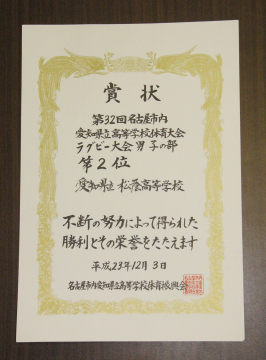 賞状
第32回名古屋市内
愛知県立高等学校体育大会
ラグビー大会男子の部
第2位
愛知県立 松蔭高等学校
不断の努力によって得られた
勝利とその栄誉をたたえます
平成23年12月3日
名古屋市内愛知県立高等学校体育振興会